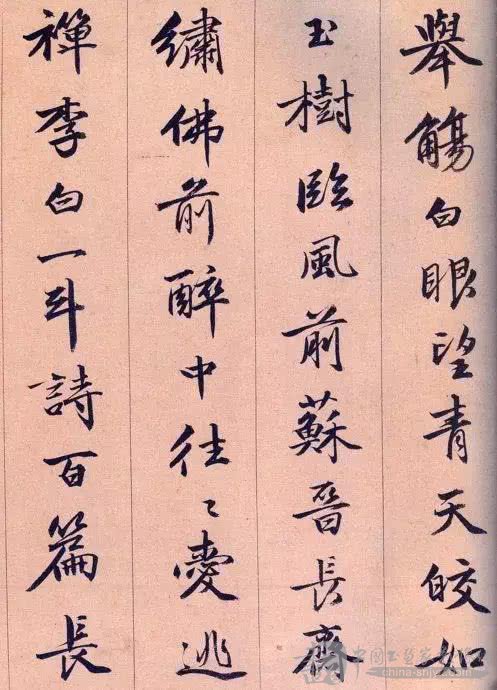 舉觴白眼望青天皎如
玉樹臨風前蘇晉長齋
繡佛前醉中往〻愛逃
禪李白一斗詩百篇長
中国书画家艺术网
china-snjy.com